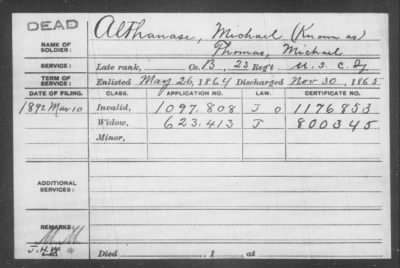 DEAD
Althanase, Michael (Known as)
NAME OF SOLDIER: Thomas, Michael
SERVICE: Late rank, Co. B, 23 Reg't U. S. C. Iy
TERM OF SERVICE: Enlisted May 26, 1864 Discharged Nov. 30, 1865
DATE OF FILING. CLASS. APPLICATION NO. LAW. CERTIFICATE NO.
1892 Mar 10 Invalid, 1097.808 J O 1176853
Widow, 623.413 J 800345
Minor,
ADDITIONAL SERVICES:
REMARKS:
J.H.M.
Died , 1 , at